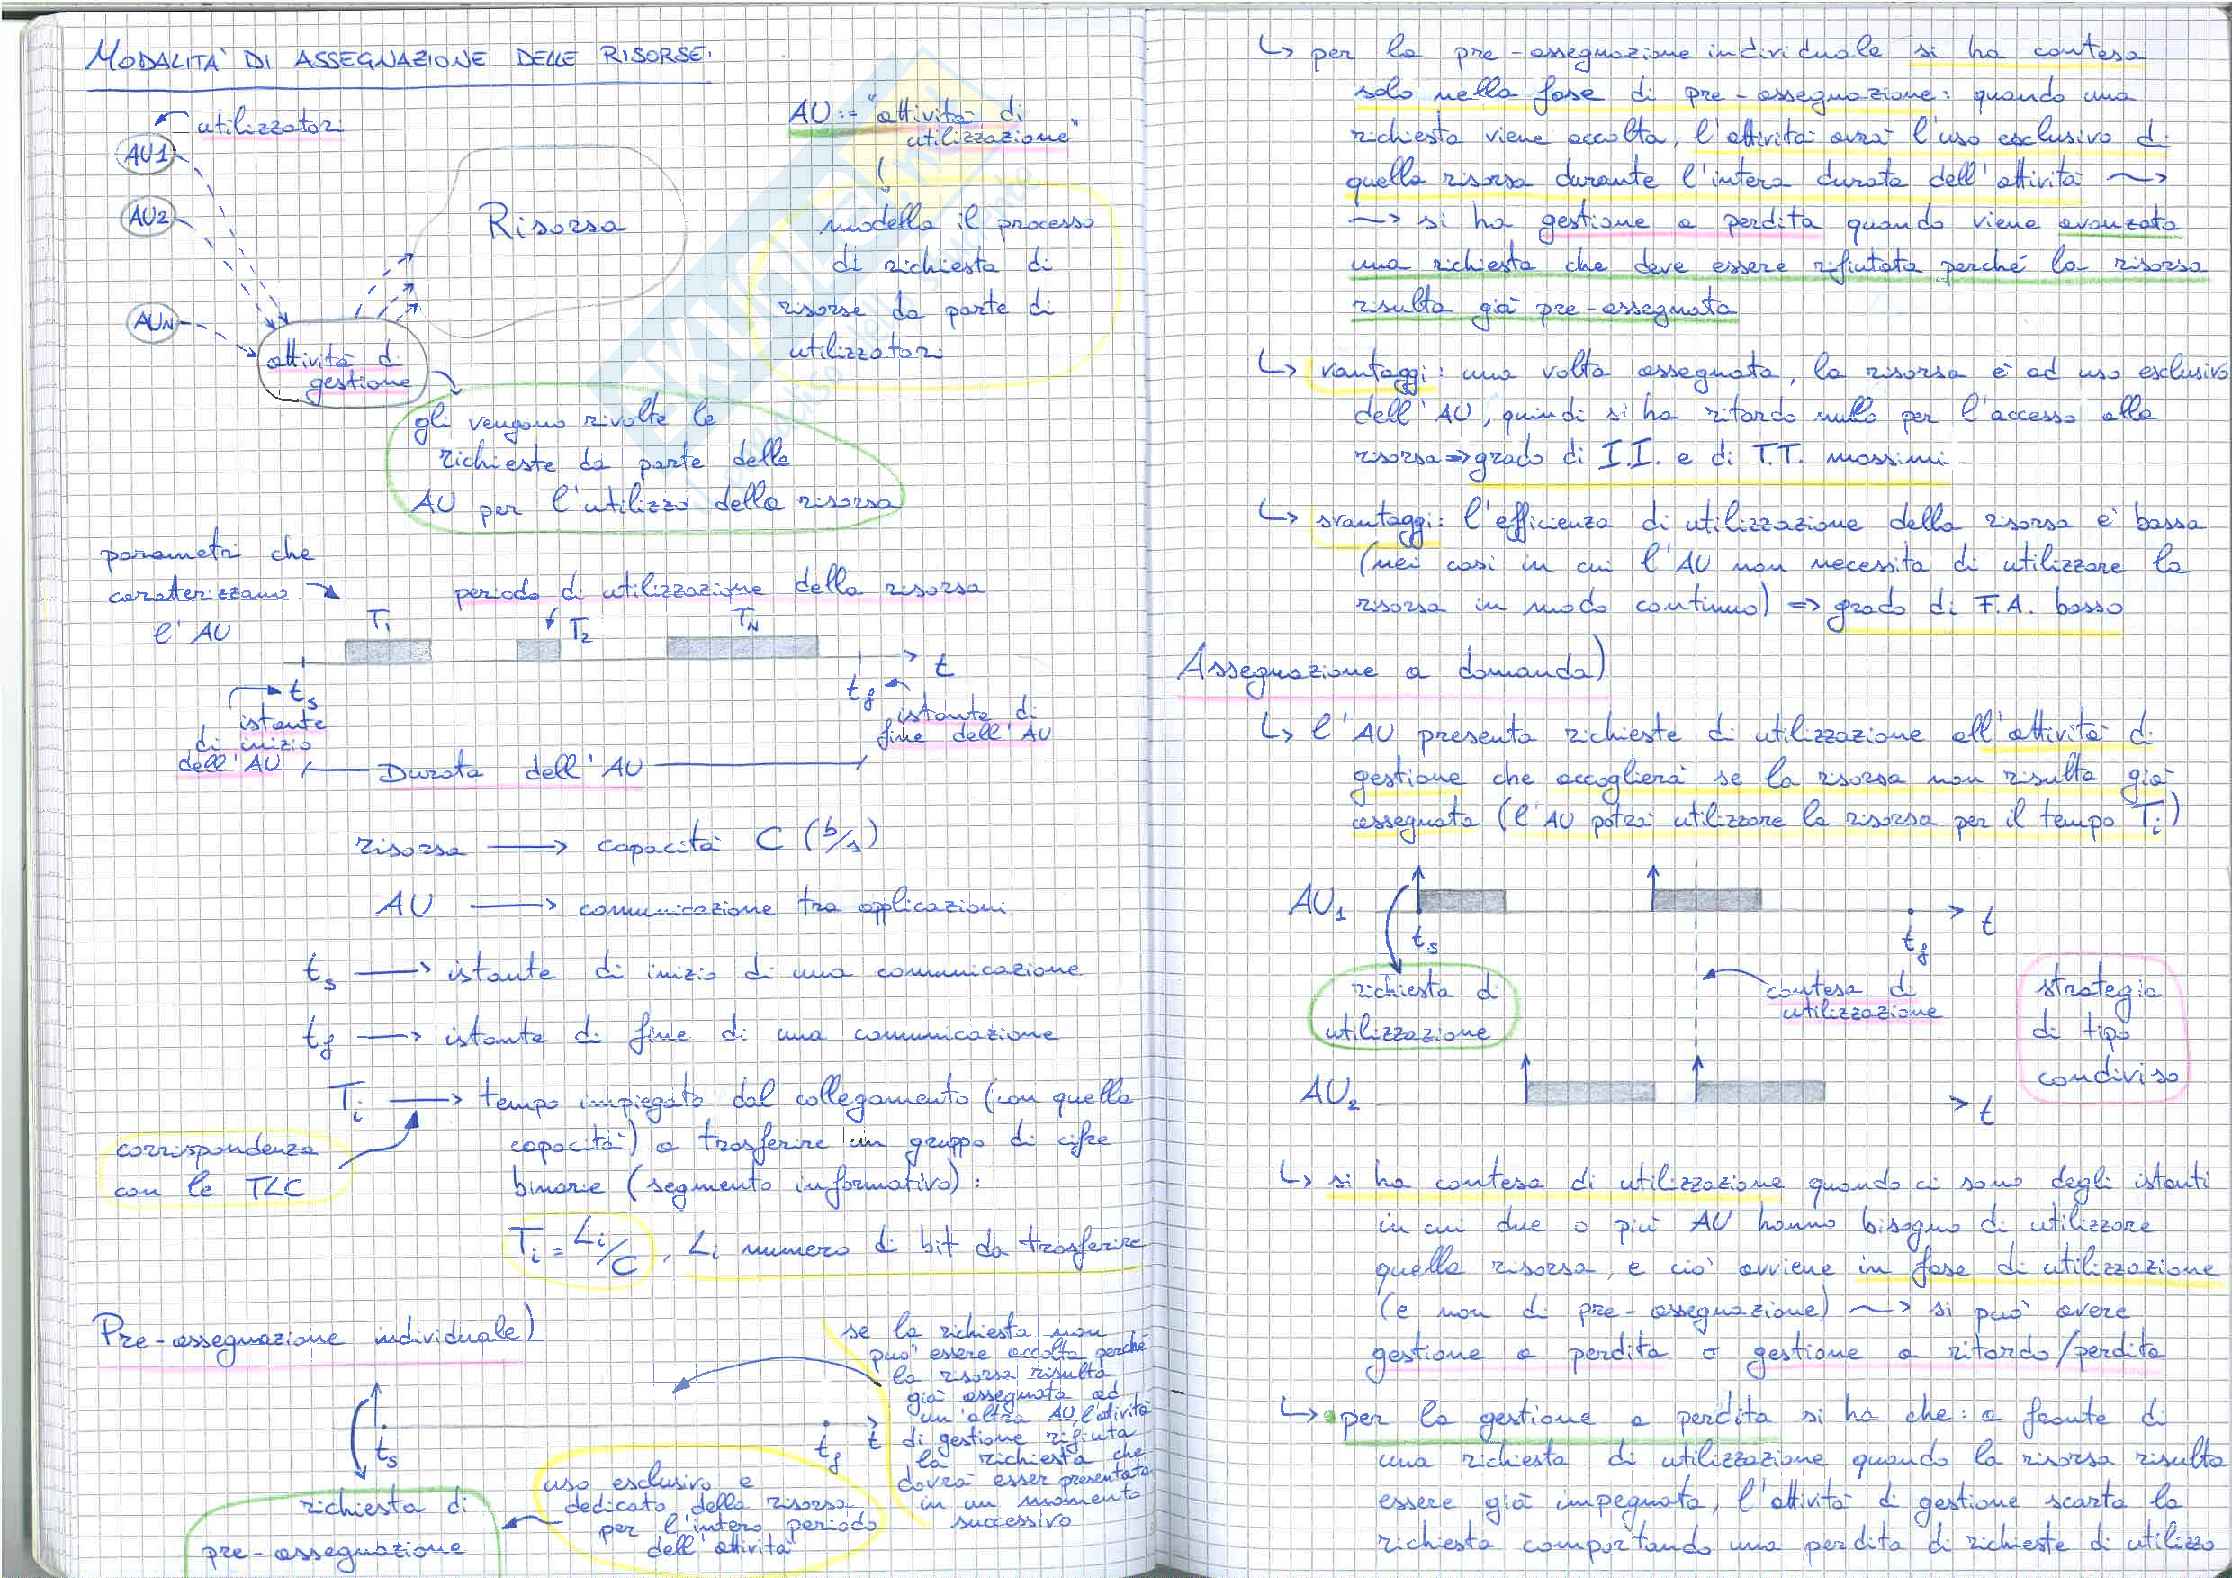 MODALITÀ DI ASSEGNAZIONE DELLE RISORSE:
utilizzatori
AU1
AU2
AUN
Risorsa
attività di
gestione
AU := "attività di
utilizzazione"
modella il processo
di richiesta di
risorse da parte di
utilizzatori
gli vengono rivolte le
richieste da parte delle
AU per l'utilizzo della risorsa
parametri che
caratterizzano
l'AU
periodo di utilizzazione della risorsa
T1
T2
TN
t
ts
istante
di inizio
dell'AU
tf
istante di
fine dell'AU
Durata dell'AU
risorsa → capacità C (b/s)
AU → comunicazione tra applicazioni
ts → istante di inizio di una comunicazione
tf → istante di fine di una comunicazione
Ti → tempo impiegato dal collegamento (con quella
capacità) a trasferire un gruppo di cifre
binarie (segmento informativo):
corrispondenza
con le TLC
Ti = Li/C, Li numero di bit da trasferire
Pre-assegnazione individuale)
se la richiesta non
può essere accolta perché
la risorsa risulta
già assegnata ad
un'altra AU, l'attività
di gestione rifiuta
la richiesta che
dovrà esser presentata
in un momento
successivo
ts
tf
t
richiesta di
pre-assegnazione
uso esclusivo e
dedicato della risorsa
per l'intero periodo
dell'attività
↳ per la pre-assegnazione individuale si ha contesa
solo nella fase di pre-assegnazione: quando una
richiesta viene accolta, l'attività avrà l'uso esclusivo di
quella risorsa durante l'intera durata dell'attività ⇝
⇝ si ha gestione a perdita quando viene avanzata
una richiesta che deve essere rifiutata perché la risorsa
risulta già pre-assegnata
↳ vantaggi: una volta assegnata, la risorsa è ad uso esclusivo
dell'AU, quindi si ha ritardo nullo per l'accesso alla
risorsa ⇒ grado di I.I. e di T.T. massimi
↳ svantaggi: l'efficienza di utilizzazione della risorsa è bassa
(nei casi in cui l'AU non necessita di utilizzare la
risorsa in modo continuo) ⇒ grado di F.A. basso
Assegnazione a domanda)
↳ l'AU presenta richieste di utilizzazione all'attività di
gestione che accoglierà se la risorsa non risulta già
assegnata (l'AU potrà utilizzare la risorsa per il tempo Ti)
AU1
ts
tf
t
richiesta di
utilizzazione
contesa di
utilizzazione
strategia
di tipo
condiviso
AU2
t
↳ si ha contesa di utilizzazione quando ci sono degli istanti
in cui due o più AU hanno bisogno di utilizzare
quella risorsa, e ciò avviene in fase di utilizzazione
(e non di pre-assegnazione) ⇝ si può avere
gestione a perdita o gestione a ritardo/perdita
↳ per la gestione a perdita si ha che: a fronte di
una richiesta di utilizzazione quando la risorsa risulta
essere già impegnata, l'attività di gestione scarta la
richiesta comportando una perdita di richieste di utilizzo